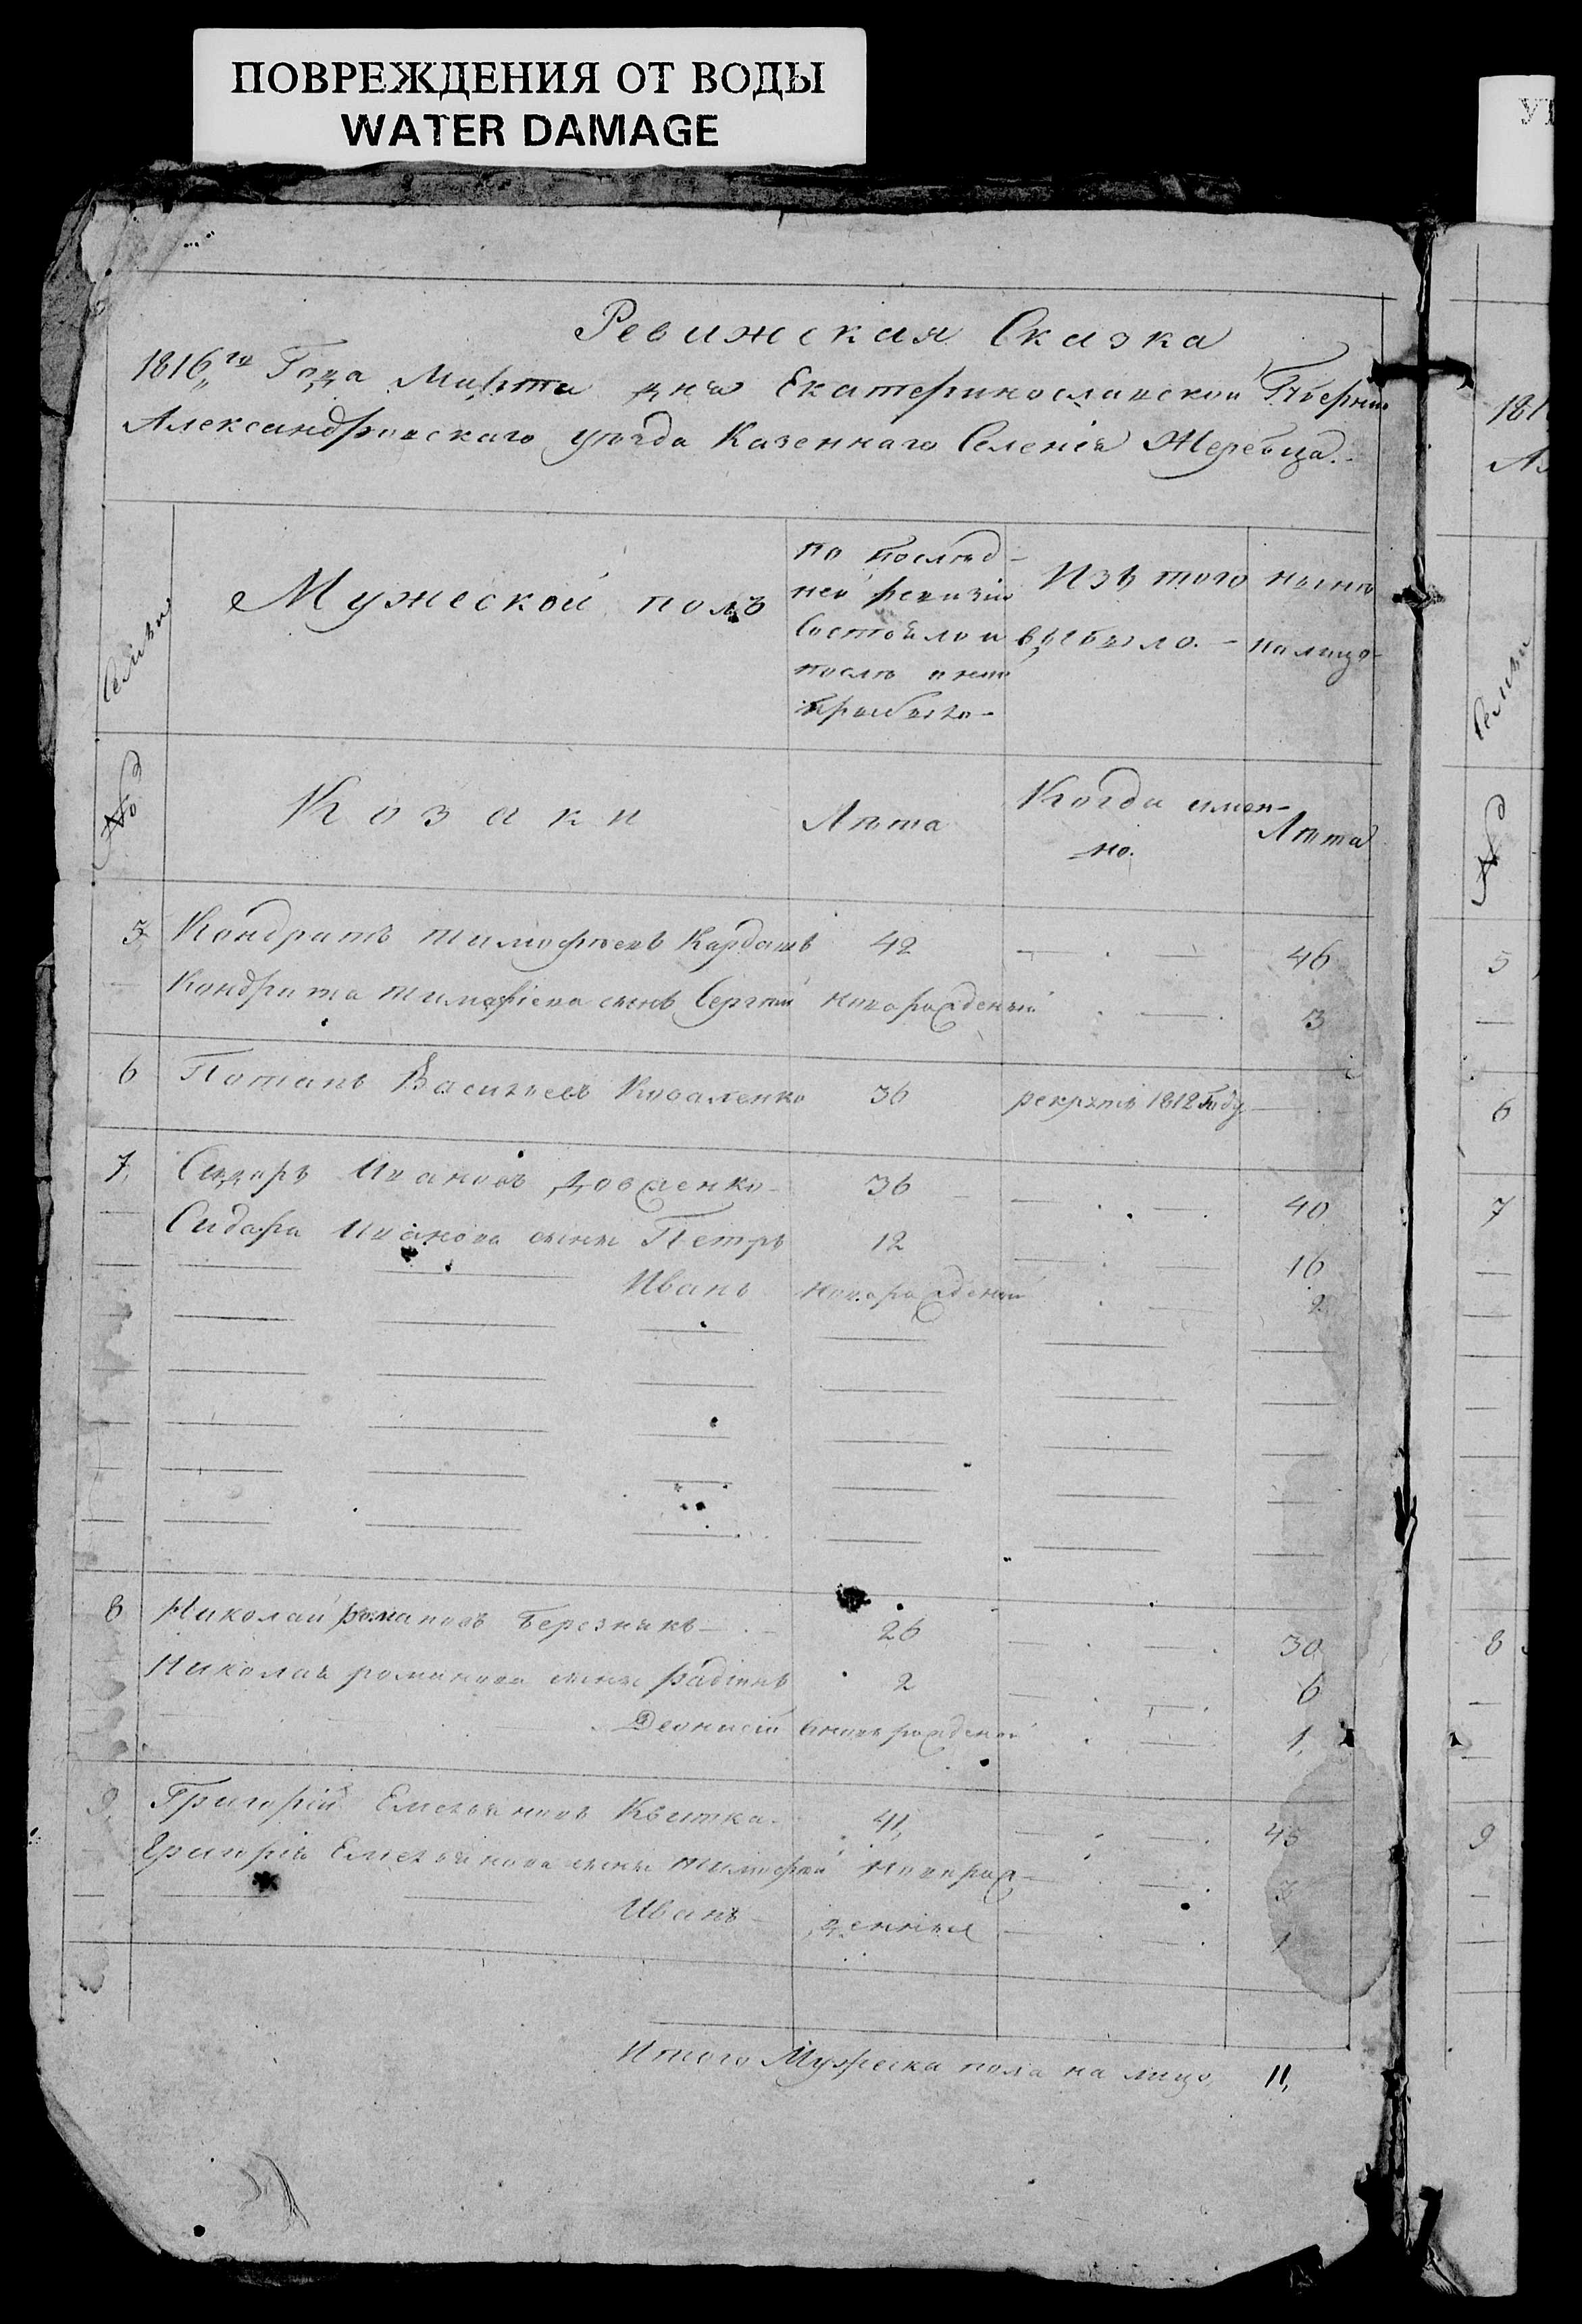 ПОВРЕЖДЕНИЯ ОТ ВОДЫ
WATER DAMAGE
Ревижская Сказка
1816„го Года Марта дня Екатеринославской Губернии
Александровскаго уѣзда Казеннаго Селенія Жеребца.
Семьи
Мужеской полъ
по послѣд-
ней ревизіи
Состояло и
послѣ оной
прибыло
Изъ того
выбыло.
нынѣ
на лицо
№
Козаки
Лѣта
Когда имен-
но.
Лѣта
5 Кондратъ Тимофѣевъ Кардашъ 42 46
Кондрата Тимофіева сынъ Сергѣй новорожденый 3
6 Потапъ Васильевъ Коваленко 36 рекрутъ 1812 Году
7, Сидоръ Ивановъ Довженко 36 40
Сидора Иванова сыны Петръ 12 16
Иванъ новорожденый 2
8 Николай романовъ Березнякъ 26 30
Николая романова сыны радіонъ 2 6
Деонисій 1,
9, Григорій Емельяновъ Квитка. 41, 45
Григорія Емельянова сыны Тимофей новорож- 3
Иванъ денныя 1
Итого Мужеска пола на лицо. 11,
181
5
6
7
8
9